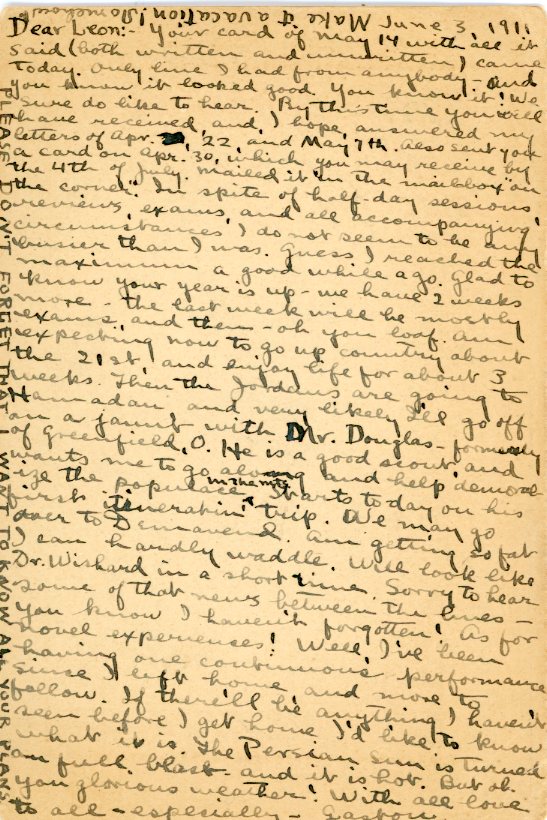 Make it a vacation! Somehow
June 3, 1911
Dear Leon:- Your card of May 14 with all it
said (both written and unwritten) came
today. Only line I had from anybody - and
you know it looked good. You know it! We
sure do like to hear. By this time you will
have received, and, I hope, answered my
letters of Apr. , 22, and May 7th. Also sent you
a card on Apr. 30, which you may receive by
the 4th of July. Mailed it "in the mailbox on
the corner." In spite of half-day sessions,
reviews, exams, and all accompanying
circumstances, I do not seem to be any
busier than I was. Guess I reached the
maximum a good while ago. Glad to
know your year is up - we have 2 weeks
more - the last week will be mostly
exams, and then - oh you loaf. Am
expecting now to go up country about
the 21st, and enjoy life for about 3
weeks. Then the Jordans are going to
Hamadan, and very likely I'll go off
on a jaunt with Mr. Douglas - formerly
of Greenfield, O. He is a good scout, and
wants me to go along and help demoral
ize the populace. Starts today on his
first itineratin' trip. We may go
over to Demavend. Am getting so fat
I can hardly waddle. Will look like
Dr. Wishard in a short time. Sorry to hear
some of that news between the lines -
you know I haven't forgotten! As for
novel experiences! Well, I've been
having one continuous performance
since I left home and more to
follow. If there'll be anything I haven't
seen before I get home I'd like to know
what it is. The Persian sun is turned
on full blast - and it is hot. But oh
you glorious weather! With all love
to all - especially -
PLEASE DON'T FORGET THAT I WANT TO KNOW ALL YOUR PLANS